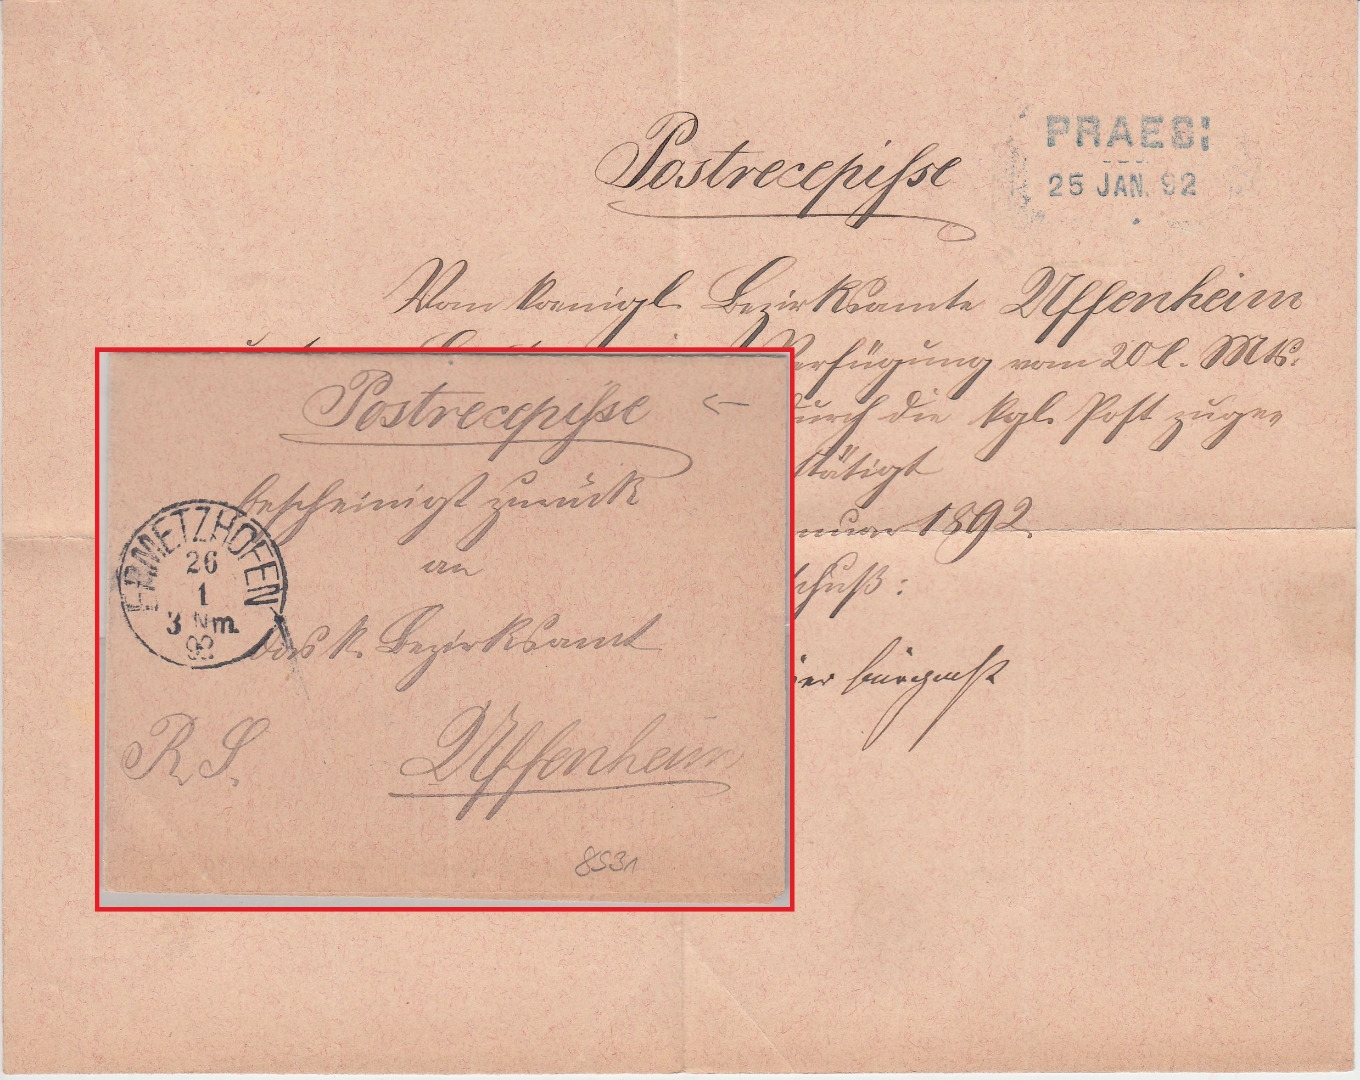 Postrecepisse
PRAES:
25 JAN. 92
Vom koenigl. Bezirksamte Uffenheim
Verfügung vom 20 l. Mts.
durch die kgl. Post zuge-
stätigt
1892.
schuß:
Postrecepisse
bescheinigt zurück
an
das k. Bezirksamt
R. S.
Uffenheim
ERMETZHOFEN
26
1
3 Nm.
8531